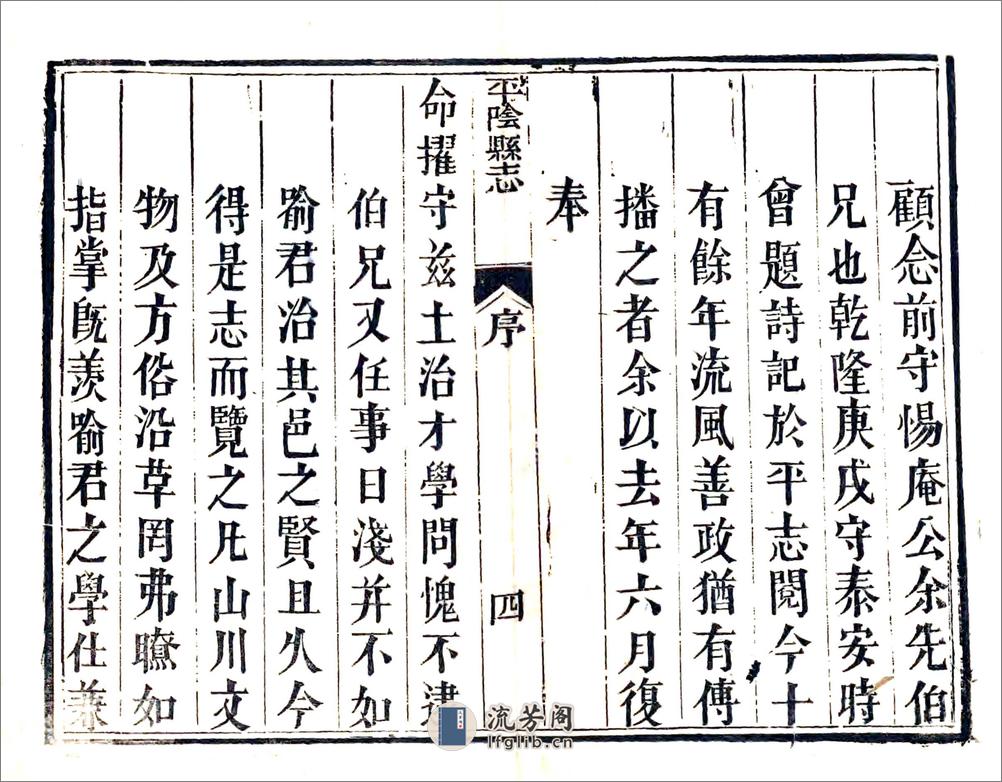 顧念前守惕庵公余先伯
兄也乾隆庚戌守泰安時
曾題詩記於平志閱今十
有餘年流風善政猶有傳
播之者余以去年六月復
奉
平陰縣志
序
四
命擢守兹土治才學問愧不逮
伯兄又任事日淺并不如
喻君治其邑之賢且久今
得是志而覽之凡山川文
物及方俗沿革罔弗瞭如
指掌旣羨喻君之學仕兼
流芳阁
lfglib.cn